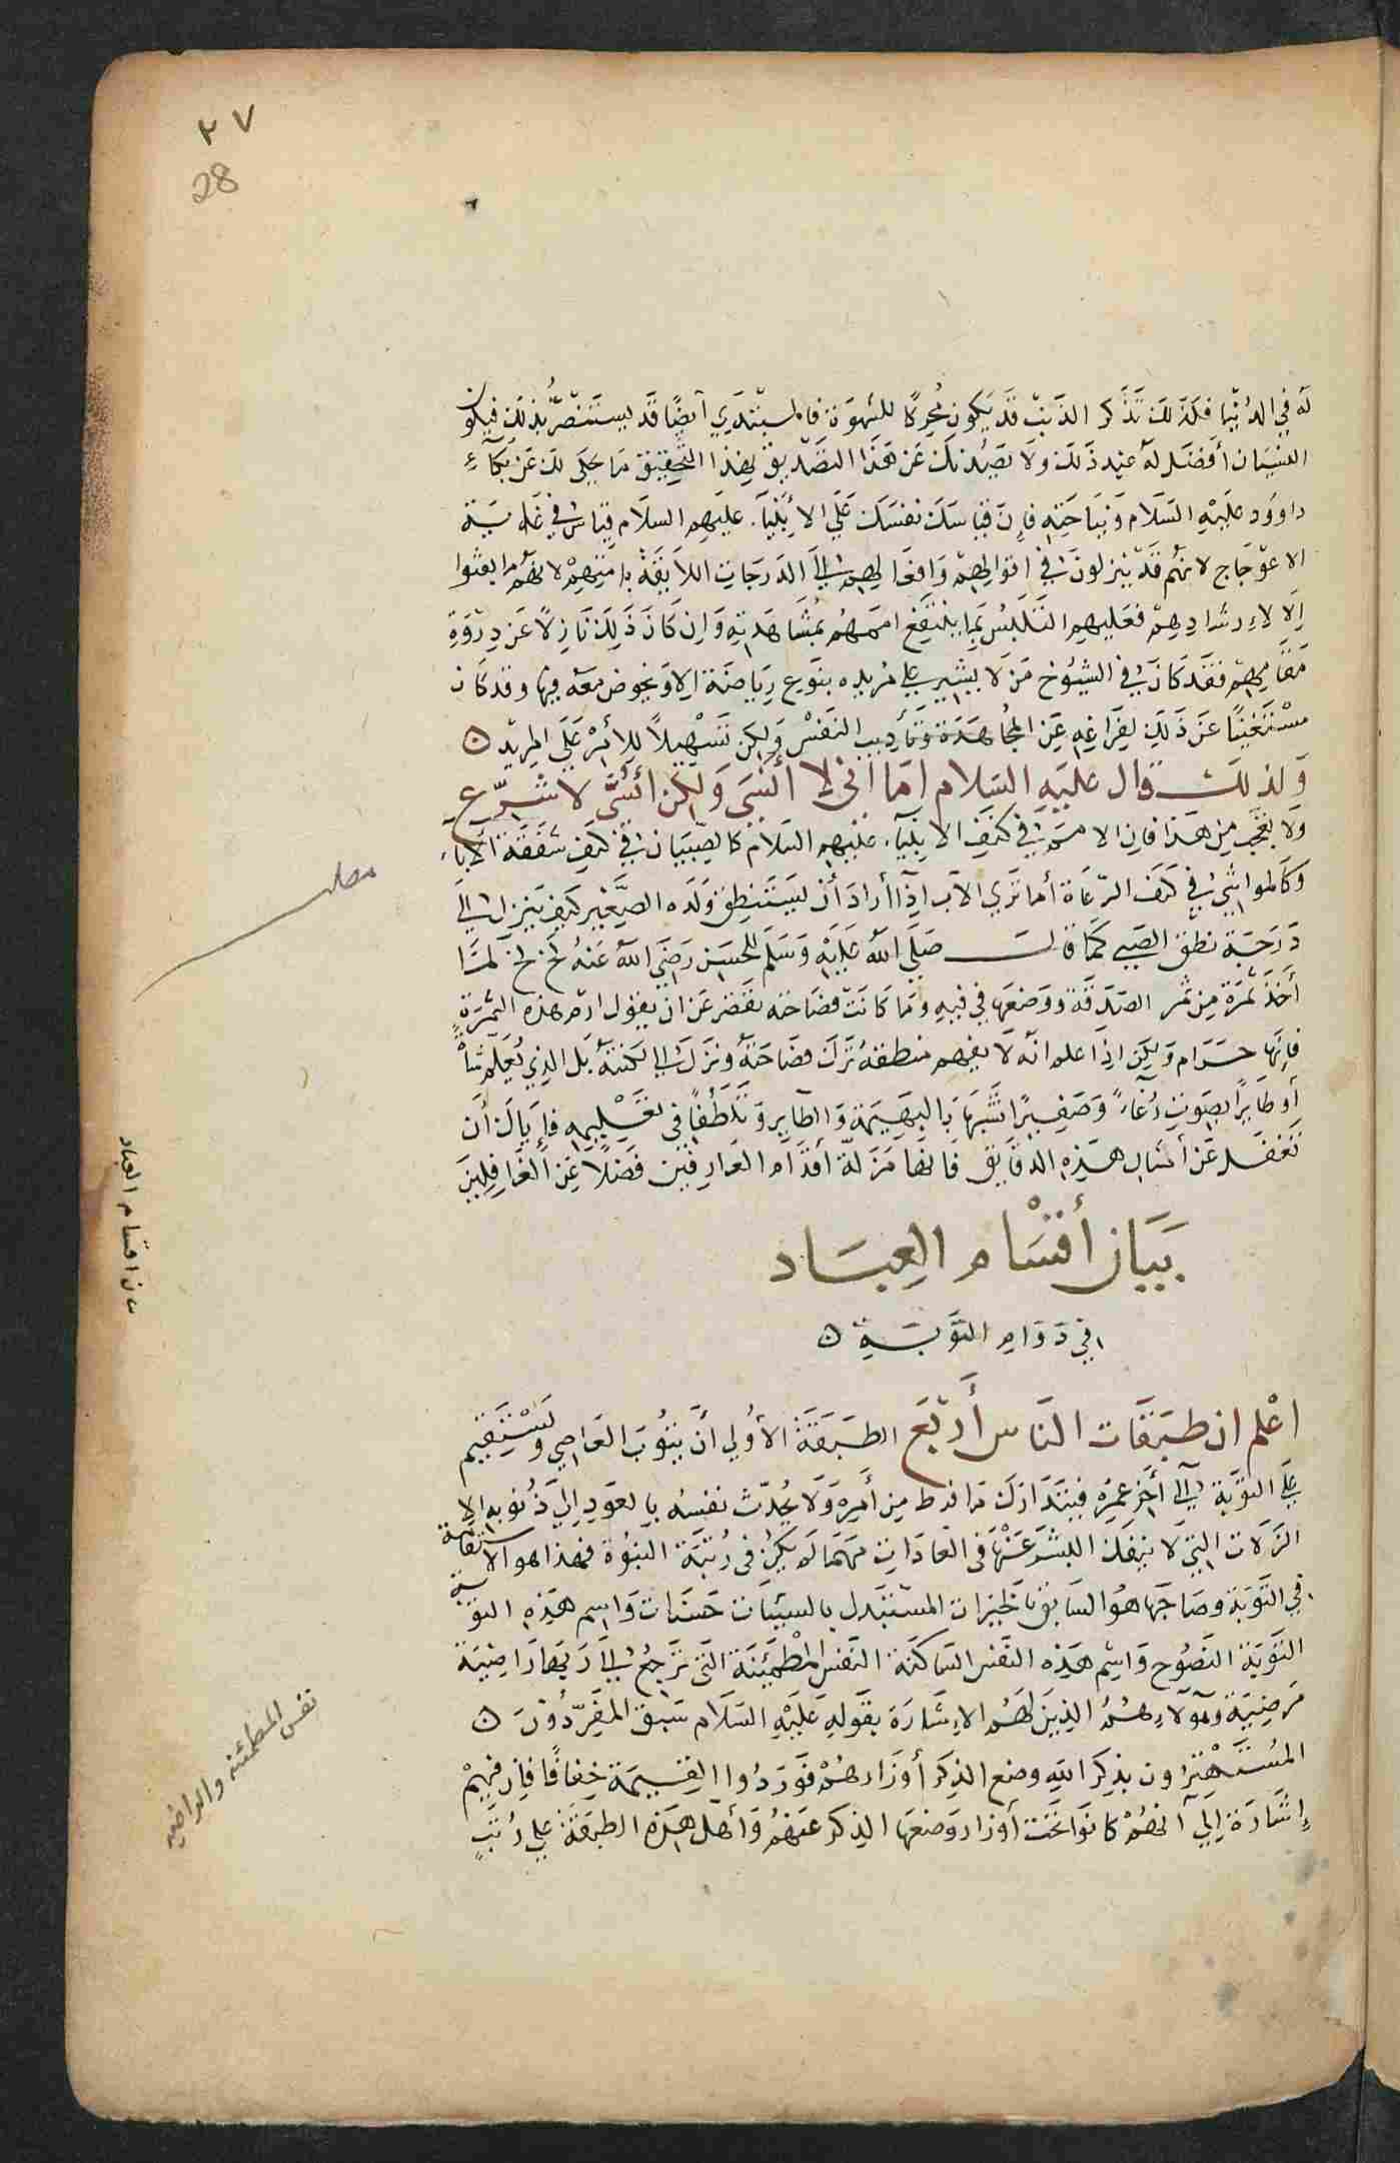 ٢٧
28
له في الدنيا فكذلك تذكر الذنب قد يكون محركا للشهوة فالمبتدي أيضا قد يستضر بذلك فيكون
النسيان أفضل له عند ذلك ولا يصدنك عن هذا التصديق بهذا التحقيق ما يحكى لك عن بكاء
داوود عليه السلام ونياحته فإن قياسك نفسك على الأنبياء عليهم السلام قياس في غاية
الاعوجاج لأنهم قد ينزلون في اقوالهم وافعالهم إلى الدرجات اللايقة بأممهم لأنهم ما بعثوا
إلا لإرشادهم فعليهم التلبس بما ينتفع اممهم بمشاهدته وإن كان ذلك نازلا عن ذروة
مقامهم فقد كان في الشيوخ من لا يشير على مريده بنوع رياضة إلا ويخوض معه فيها وقد كان
مستغنيا عن ذلك لفراغه عن المجاهدة وتأديب النفس ولكن تسهيلا للأمر على المريد ه
ولذلك قال عليه السلام اما اني لا أنسى ولكن أنسى لاشرع
ولا تعجب من هذا فان الامم في كنف الانبياء عليهم السلام كالصبيان في كنف شفقة الآباء
وكالمواشي في كنف الرعاة أما ترى الأب إذا أراد أن يستنطق ولده الصغير كيف ينزل إلى
درجة نطق الصبي كما قال صلى الله عليه وسلم للحسن رضي الله عنه كخ كخ لما
أخذ تمرة من تمر الصدقة ووضعها في فيه وما كانت فصاحته تقصر عن ان يقول ارم هذه التمرة
فإنها حرام ولكن اذا علم انه لا يفهم منطقه ترك فصاحته ونزل إلى لكنته بل الذي يعلم شاة
أو طايرا يصوت رغاء وصفيرا تشبها بالبهيمة والطاير وتلطفا في تعليمه فإياك أن
تغفل عن أمثال هذه الدقايق فانها مزلة أقدام العارفين فضلا عن الغافلين
بيان أقسام العباد
في دوام التوبة ه
اعلم ان طبقات الناس أربع الطبقة الأولى أن يتوب العاصي ويستقيم
على التوبة إلى آخر عمره فيتدارك ما فرط من أمره ولا يحدث نفسه بالعود إلى ذنوبه إلا
الزلات التي لا ينفك البشر عنها في العادات مهما لم يكن في رتبة النبوة فهذا هو الاستقامة
في التوبة وصاحبها هو السابق بالخيرات المستبدل بالسيئات حسنات واسم هذه التوبة
التوبة النصوح واسم هذه النفس الساكنة النفس المطمئنة التي ترجع إلى ربها راضية
مرضية وهولاء هم الذين لهم الإشارة بقوله عليه السلام سبق المفردون ه
المستهترون بذكر الله وضع الذكر أوزارهم فوردوا القيمة خفافا فإن فيهم
إشارة إلى أنهم كانوا تحت أوزار وضعها الذكر عنهم وأهل هذه الطبقة على رتب
مطلب
بيان اقسام العباد
نفس المطمئنه والراضيه